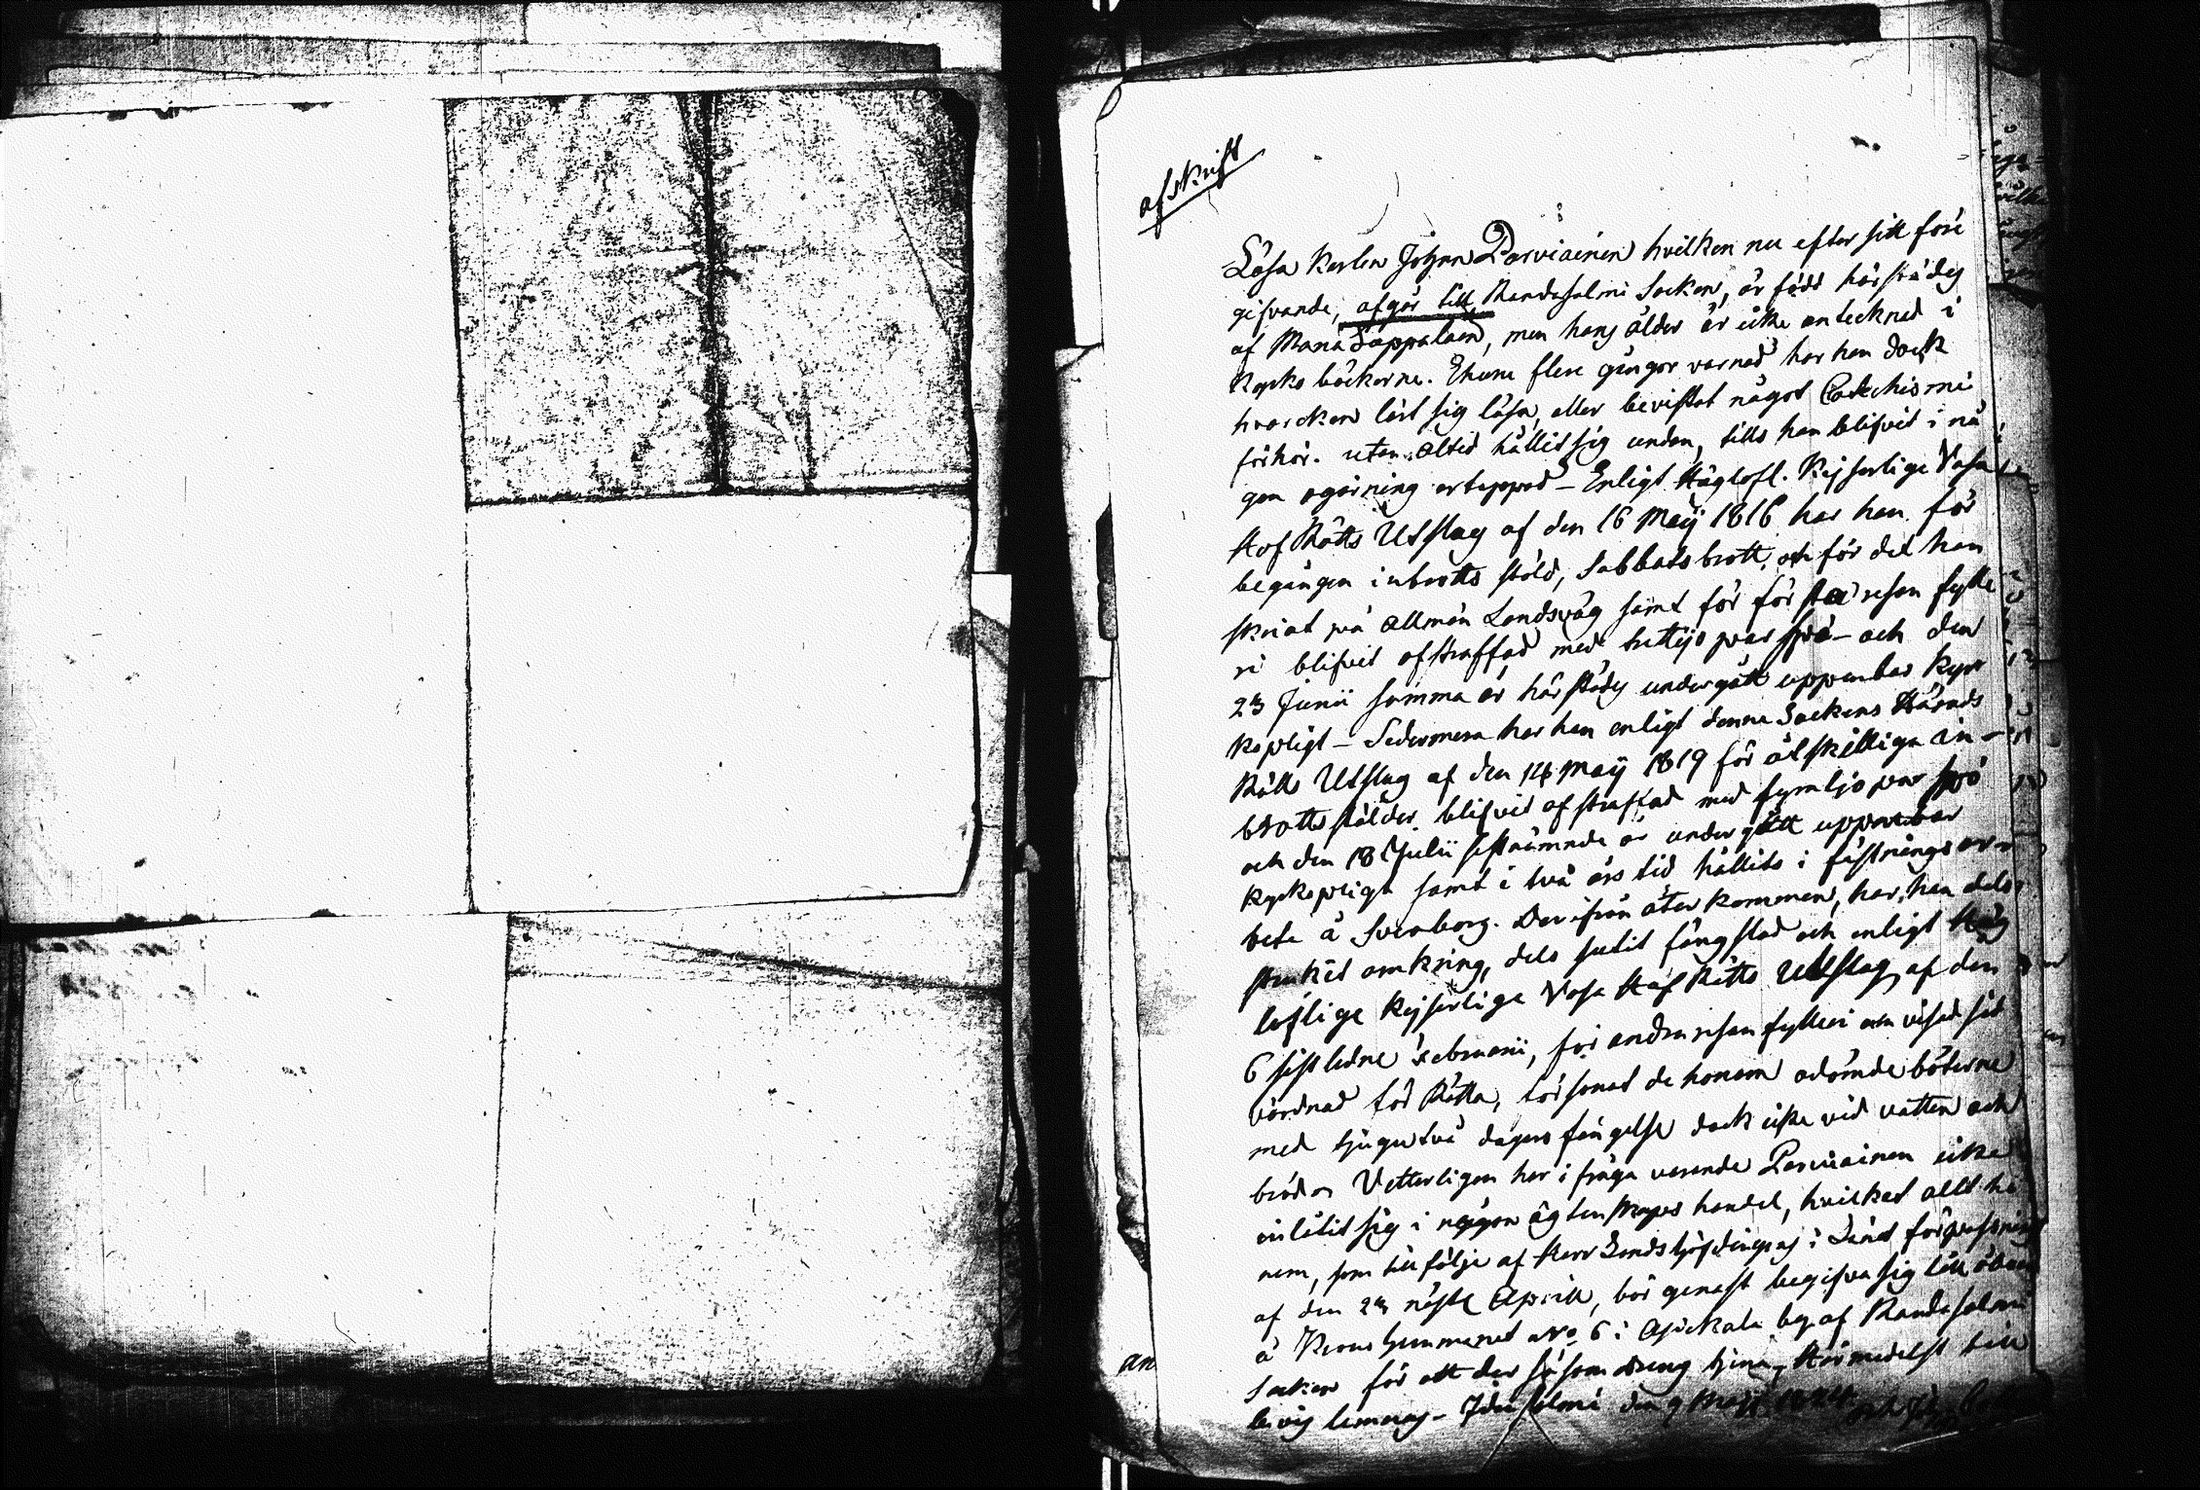 afskrift
Lösa Karlen Johan Parviainen hvilken nu efter sitt före
gifvande, afgår till Randasalmi Socken, är född härstädes
af Maria Tappalaen, men hans ålder är icke antecknad i
Kyrko böckerne. Ehuru flere gångor varnad har han dock
hvarcken lärt sig läsa, eller bevistat något Catechismi
förhör. utan altid hållit sig undan, tills han blifvit i nå
gon ogärning ertappad – Enligt Höglofl. Kejserliga Vasa
Hof Rätts Utslag af den 16 Maji 1816 har han för
begången inbrotts stöld, Sabbatsbrott, och för det han
skriat på allmän Landsväg samt för första resan fylle
ri blifvit afstraffad med trettijo par spö – och den
23 Junii samma år härstädes undergått uppenbar kyr
kopligt – Sedermera har han enligt denna Sockens Härads
Rätts Utslag af den 14 Maji 1819 för åtskilliga in-
brotts stölder blifvit afstraffad med fyratijo par spö
och den 18 Julii sistnämnde år undergått uppenbar
kyrkopligt samt i två års tid hållits i fästnings ar-
bete å Sveaborg. Derifrån återkommen, har han dels
strukit omkring, dels sutit fängslad och enligt Hög
loflige Kejserlige Vasa Hof Rätts Utslag af den
6 sistledne Februarii, för andra resan fylleri och visad sid
vördnad för Rätta, försonat de honom ådömde böterne
med tjugutvå dagars fängelse dock icke vid vatten och
bröd. Vetterligen har i fråga varande Parviainen icke
inlåtit sig i någon ägtenskaps handel, hvilket allt hö
nom, som till följe af Herr Landshöfdingens i Länet förpassning
af den 23 näst Aprill, bör genast begifva sig till åboen
å Krono hemmanet No 6 i Asickala by af Randasalmi
Socken för att der såsom dreng tjena, Härmedelst till
bevis lemnas – Idensalmi den 9 Maji 1824
an